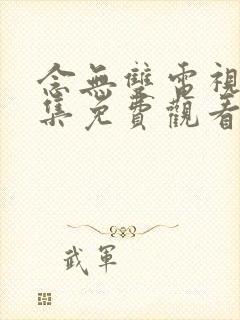 念無雙電視
集免費觀看
武軍